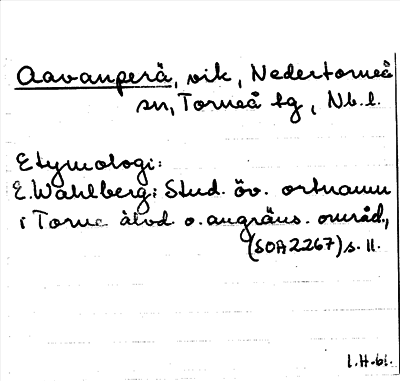 Aavanperä, vik, Nedertorneå
sn, Torneå tg, Nb. l.
Etymologi:
E. Wahlberg: Stud. öv. ortnamn
i Torne älvd. o. angräns. områd.,
(SOA 2267) s. 11.
I.H-61.